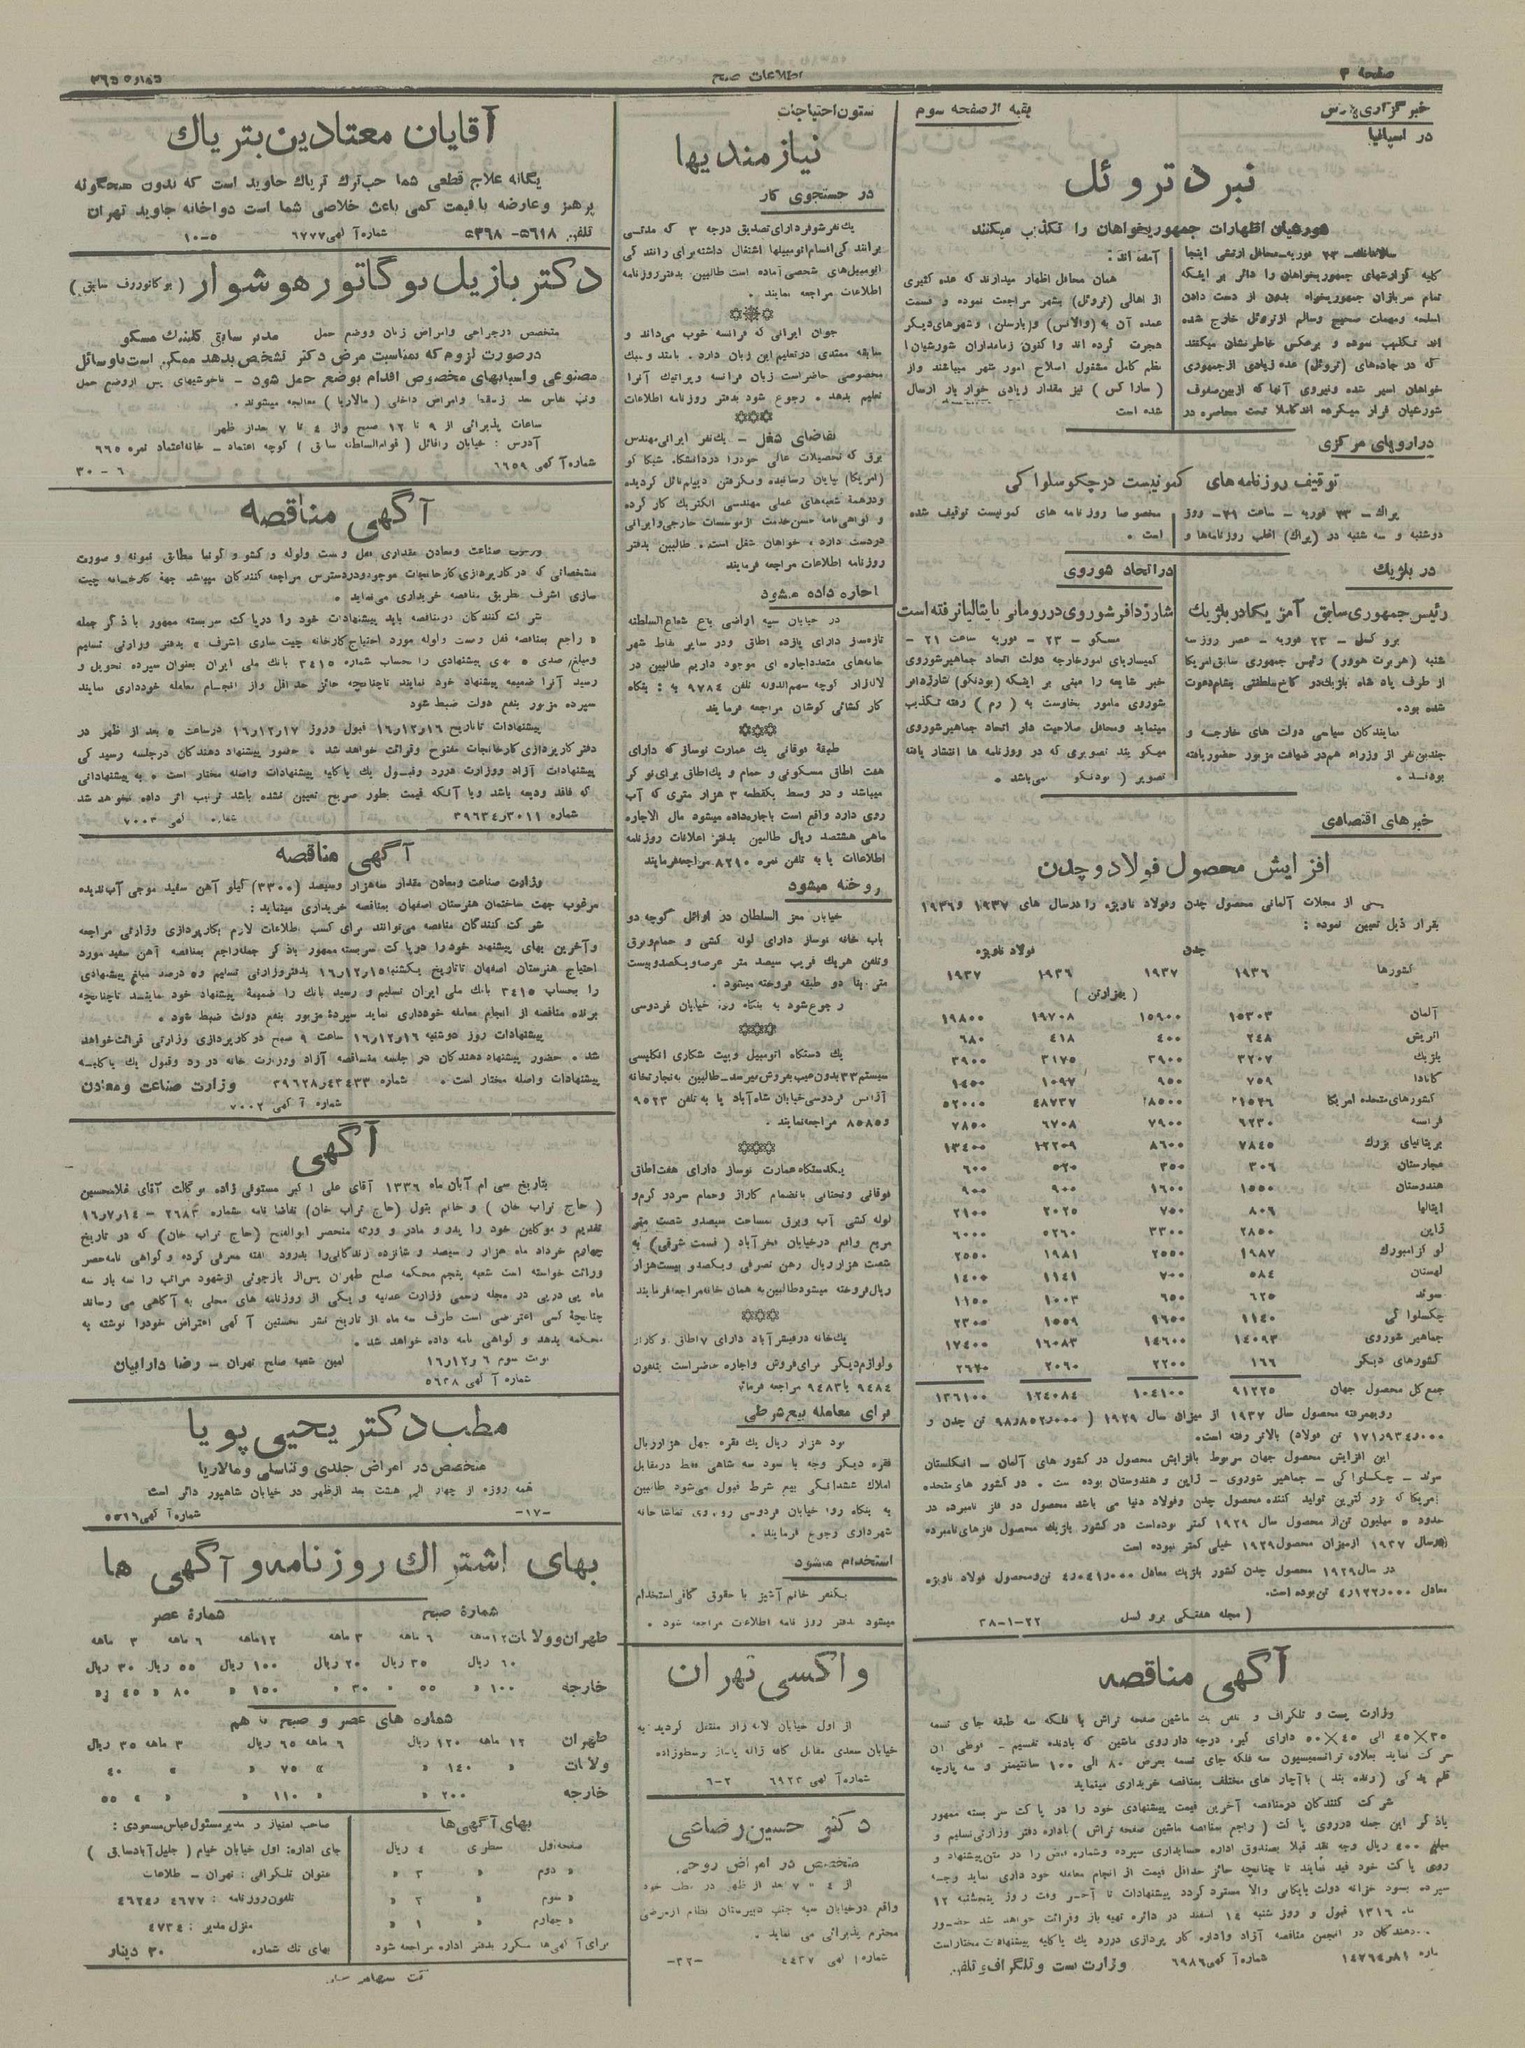 صفحه ۴
اطلاعات صبح
خبرگزاری پارس
بقیه از صفحه سوم
در اسپانیا
نبرد تروئل
شورشیان اظهارات جمهوریخواهان را تکذیب میکنند
سالامانك ـ ۲۳ فوریه ـ محافل ارتشی اینجا
کلیه گزارشهای جمهوریخواهان را دائر بر اینکه
تمام سربازان جمهوریخواه بدون از دست دادن
اسلحه ومهمات صحیح وسالم از تروئل خارج شده
اند تکذیب نموده و برعکس خاطرنشان میکنند
که در جاده‌های (تروئل) عده زیادی از جمهوری
خواهان اسیر شده ونیروی آنها که از بین صفوف
شورشیان فرار میکرده اند کاملا تحت محاصره در
آمده اند :
همان محافل اظهار میدارند که عده کثیری
از اهالی (تروئل) بشهر مراجعت نموده و قسمت
عمده آن به (والانس) و(بارسلن) وشهرهای دیگر
هجرت کرده اند و اکنون زمامداران شورشیان با
نظم کامل مشغول اصلاح امور شهر میباشند و از
(ساراگس) نیز مقدار زیادی خوار بار ارسال
شده است
در اروپای مرکزی
توقیف روزنامه های کمونیست در چکوسلواکی
پراك ـ ۲۳ فوریه ـ ساعت ۲۱ ـ روز
دوشنبه و سه شنبه در (پراك) اغلب روزنامه‌ها و
مخصوصا روزنامه های کمونیست توقیف شده
است .
در بلژیك
رئیس جمهوری سابق آمریکا در بلژیك
بروکسل ـ ۲۳ فوریه ـ عصر روز سه
شنبه (هربرت هوور) رئیس جمهوری سابق امریکا
از طرف پادشاه بلژیك در کاخ سلطنتی بشام دعوت
شده بود.
نمایندگان سیاسی دولت های خارجه و
چندین نفر از وزراء هم در ضیافت مزبور حضور یافته
بودند .
در اتحاد شوروی
شارژ دافر شوروی در رومانی بایتالیا نرفته است
مسکو ـ ۲۳ ـ فوریه ساعت ۲۱ ـ
کمیساریای امور خارجه دولت اتحاد جماهیر شوروی
خبر شایعه را مبنی بر اینکه (بودنکو) شارژ دافر
شوروی مامور بخارست به ( رم ) رفته تکذیب
مینماید ومحافل صلاحیت دار اتحاد جماهیر شوروی
میگویند تصویری که در روزنامه ها انتشار یافته
تصویر ( بودنکو نمی‌باشد .
خبرهای اقتصادی
افزایش محصول فولاد و چدن
یکی از مجلات آلمانی محصول چدن وفولاد ناویژه را در سال های ۱۹۳۷ و ۱۹۳۶
بقرار ذیل تعیین نموده :
چدن فولاد ناویژه
کشورها ۱۹۳۶ ۱۹۳۷ ۱۹۳۶ ۱۹۳۷
( بهزار تن )
آلمان ۱۵۳۰۳ ۱۵۹۰۰ ۱۹۷۰۸ ۱۹۸۰۰
اتریش ۲۴۸ ۴۰۰ ۴۱۸ ۶۸۰
بلژیك ۳۲۰۷ ۳۹۰۰ ۳۱۷۵ ۳۹۰۰
کانادا ۷۵۹ ۹۵۰ ۱۰۹۷ ۱۴۵۰
کشورهای متحده امریکا ۳۱۵۲۶ ۳۸۵۰۰ ۴۸۷۳۷ ۵۲۰۰۰
فرانسه ۶۲۳۰ ۷۹۰۰ ۶۷۰۸ ۷۸۵۰
بریتانیای بزرك ۷۸۴۵ ۸۶۰۰ ۱۲۲۰۹ ۱۳۴۰۰
مجارستان ۳۰۶ ۳۵۰ ۵۲۰ ۶۰۰
هندوستان ۱۵۵۰ ۱۶۰۰ ۹۰۰ ۹۰۰
ایتالیا ۸۰۶ ۷۵۰ ۲۰۲۵ ۲۱۰۰
ژاپن ۲۸۵۰ ۳۳۰۰ ۵۲۶۰ ۶۰۰۰
لوکزامبورك ۱۹۸۷ ۲۵۵۰ ۱۹۸۱ ۲۵۵۰
لهستان ۵۸۴ ۷۰۰ ۱۱۴۱ ۱۴۰۰
سوئد ۶۲۵ ۶۵۰ ۱۰۰۳ ۱۱۵۰
چکسلواکی ۱۱۴۰ ۱۶۵۰ ۱۵۵۹ ۲۳۰۰
جماهیر شوروی ۱۴۰۹۳ ۱۴۶۰۰ ۱۶۰۸۳ ۱۷۴۰۰
کشورهای دیگر ۲۲۰۰ ۲۰۹۰
جمع کل محصول جهان ۹۱۲۲۵ ۱۰۴۱۰۰ ۱۲۴۰۸۴ ۱۳۶۱۰۰
رویهمرفته محصول سال ۱۹۳۷ از میزان سال ۱۹۲۹ ( ۹۸٫۸۵۲٫۰۰۰ تن چدن و
تن فولاد) بالاتر رفته است.
این افزایش محصول جهان مربوط بافزایش محصول در کشور های آلمان ـ انگلستان
سوئد ـ چکسلواکی ـ جماهیر شوروی ـ ژاپن و هندوستان بوده است . در کشور های متحده
امریکا که بزرگترین تولید کننده محصول چدن وفولاد دنیا می باشد محصول دو فلز نامبرده در
حدود ۵ میلیون تن از محصول سال ۱۹۲۹ کمتر بوده است در کشور بلژیك محصول فلزهای نامبرده
در سال ۱۹۳۷ از میزان محصول ۱۹۲۹ خیلی کمتر نبوده است
در سال ۱۹۲۹ محصول چدن کشور بلژیك معادل ۴٫۰۴۱٫۰۰۰ تن ومحصول فولاد ناویژه
معادل ۴٫۱۲۲٫۰۰۰ تن بوده است.
( مجله هفتگی بروکسل ۲۲-۱-۳۸
آگهی مناقصه
وزارت پست و تلگراف و تلفن یك ماشین صفحه تراش با فلکه سه طبقه جای تسمه
دارای گیره درجه دار روی ماشین که با دنده تقسیم ـ قوطی آن
حرکت نماید بعلاوه ترانسمیسیون سه فلکه جای تسمه بعرض ۸۰ الی ۱۰۰ سانتیمتر و سه پارچه
قلم یدکی ( رنده بند ) با آچار های مختلف بمناقصه خریداری مینماید
شرکت کنندگان در مناقصه آخرین قیمت پیشنهادی خود را در پاکت سر بسته ممهور
با ذکر این جمله در روی پاکت ( راجع بمناقصه ماشین صفحه تراش ) باداره دفتر وزارتی تسلیم و
مبلغ ۴۰۰ ریال وجه نقد قبلا بصندوق اداره حسابداری سپرده وشماره قبض را در متن پیشنهاد و
روی پاکت خود قید نمایند تا چنانچه حائز حداقل قیمت از انجام معامله خود داری نماید وجه
سپرده بسود خزانه دولت بایگانی والا مسترد گردد پیشنهادات تا آخر وقت روز پنجشنبه ۱۲
ماه ۱۳۱۶ قبول و روز شنبه ۱۴ اسفند در دائره تهیه باز وقرائت خواهد شد حضور
دهندگان در انجمن مناقصه آزاد واداره کار پردازی در رد یك یا کلیه پیشنهادات مختار است
شماره آگهی ۶۹۸۶ وزارت پست و تلگراف و تلفن
ستون احتیاجات
نیازمندیها
در جستجوی کار
یك نفر شوفر دارای تصدیق درجه ۳ که مدتی
برانندگی اقسام اتومبیلها اشتغال داشته برای رانندگی
اتومبیل‌های شخصی آماده است طالبین بدفتر روزنامه
اطلاعات مراجعه نمایند .
جوان ایرانی که فرانسه خوب می‌داند و
سابقه ممتدی در تعلیم این زبان دارد . بامتد و سبك
مخصوصی حاضر است زبان فرانسه وپراتیك آنرا
تعلیم بدهد . رجوع شود بدفتر روزنامه اطلاعات
تقاضای شغل ـ یك نفر ایرانی مهندس
برق که تحصیلات عالی خود را در دانشگاه شیکاگو
(امریکا) بپایان رسانیده وبگرفتن دیپلم نائل گردیده
ودر همه شعبه‌های عملی مهندسی الکتریك کار کرده
و گواهی نامه حسن خدمت از موسسات خارجی وایرانی
در دست دارد ، خواهان شغل است . طالبین بدفتر
روزنامه اطلاعات مراجعه فرمایند
اجاره داده میشود
در خیابان سپه اراضی باغ شعاع السلطنه
تازه‌ساز دارای پازده اطاق ودر سایر نقاط شهر
خانه‌های متعدد اجاره ای موجود داریم طالبین در
لاله‌زار کوچه سهم الدوله تلفن ۹۷۸۴ به : بنگاه
کار گشائی کوشان مراجعه فرمایند
طبقه فوقانی یك عمارت نوساز که دارای
هفت اطاق مسکونی و حمام و یك اطاق برای نوکر
میباشد و در وسط یکقطعه ۳ هزار متری که آب
روی دارد واقع است باجاره داده میشود مال الاجاره
ماهی هشتصد ریال طالبین بدفتر اطلاعات روزنامه
اطلاعات یا به تلفن نمره ۸۲۹۰ مراجعه فرمایند
فروخته میشود
خیابان معز السلطان در اوائل کوچه دو
باب خانه نوساز دارای لوله کشی و حمام وبرق
وتلفن هریك قریب سیصد متر عرصه ویکصد وبیست
متر بنا دو طبقه فروخته میشود .
رجوع شود به بنگاه رو خیابان فردوسی
یك دستگاه اتومبیل وبیت شکاری انگلیسی
سیستم ۳۳ بدون عیب بفروش میرسد ـ طالبین به تجارتخانه
آژانس فردوسی خیابان شاه‌آباد یا به تلفن ۹۵۲۳
و ۸۵۸۵ مراجعه نمایند .
یکدستگاه عمارت نوساز دارای هفت اطاق
فوقانی وتحتانی بانضمام گاراژ وحمام سرد و گرم و
لوله کشی آب وبرق بمساحت سیصد و شصت متر
مربع واقع در خیابان فخرآباد ( قسمت شرقی ) به
شصت هزار ریال رهن تصرفی ویکصد و بیست هزار
ریال فروخته میشود طالبین به همان خانه مراجعه فرمایند
یك خانه در فیشرآباد دارای ۷ اطاق و گاراژ
ولوازم دیگر برای فروش واجاره حاضر است بتلفون
۹۴۸۴ یا ۹۴۸۳ مراجعه فرمائید
برای معامله بیع شرطی
نود هزار ریال یك فقره چهل هزار ریال
فقره دیگر وجه با سود سه شاهی فقط در مقابل
املاك ششدانگی بیع شرط قبول می‌شود طالبین
به بنگاه روا خیابان فردوسی روبروی تماشاخانه
شهرداری رجوع فرمایند .
استخدام میشود
یکنفر خانم آشپز با حقوق کافی استخدام
میشود بدفتر روزنامه اطلاعات مراجعه شود .
واکسی تهران
از اول خیابان لاله زار منتقل گردید به
خیابان سعدی مقابل کافه ژاله پاساژ رسطوزاده
شماره آگهی ۶۹۲۳ ۲-۶
دکتر حسین رضاعی
متخصص در امراض روحی
از ۴ تا ۷ بعد از ظهر در مطب خود
واقع در خیابان سپه جنب دبیرستان نظام از مرضی
محترم پذیرائی می نماید .
شماره آگهی ۴۴۳۷ -۳۲-
آقایان معتادین بتریاك
یگانه علاج قطعی شما حب ترك تریاك جاوید است که بدون هیچگونه
پرهیز و عارضه با قیمت کمی باعث خلاصی شما است دواخانه جاوید تهران
تلفن ۵۶۱۸ - ۵۳۶۸ شماره آگهی ۶۷۷۷ ۵-۱۰
دکتر بازیل بوگاتور هوشوار ( بوگاتوررف سابق )
متخصص در جراحی وامراض زنان ووضع حمل مدیر سابق کلینیك مسکو
در صورت لزوم که بمناسبت مرض دکتر تشخیص بدهد ممکن است با وسائل
مصنوعی واسبابهای مخصوص اقدام بوضع حمل شود ـ ناخوشیهای پس از وضع حمل
وامراض داخلی ( مالاریا ) معالجه میشوند .
ساعات پذیرائی از ۹ تا ۱۲ صبح و از ۴ تا ۷ بعد از ظهر
آدرس : خیابان رافائل ( قوام السلطنه سابق ) کوچه اعتماد ـ خانه اعتماد نمره ۶۶۵
شماره آگهی ۶۶۵۹ ۶ - ۳۰
آگهی مناقصه
وزارت صناعت ومعادن مقداری قفل و بست ولوله و کشو و گونیا مطابق نمونه و صورت
مشخصاتی که در کارپردازی کارخانجات موجود ودر دسترس مراجعه کنندگان میباشد جهة کارخانه چیت
سازی اشرف بطریق مناقصه خریداری می‌نماید .
شرکت کنندگان در مناقصه باید پیشنهادات خود را در پاکت سربسته ممهور با ذکر جمله
« راجع بمناقصه قفل وبست ولوله مورد احتیاج کارخانه چیت سازی اشرف » بدفتر وزارتی تسلیم
ومبلغ صدی ۵ بهای پیشنهادی را بحساب شماره ۳۴۱۵ بانك ملی ایران بعنوان سپرده تحویل و
رسید آنرا ضمیمه پیشنهاد خود نمایند تا چنانچه حائز حداقل واز انجام معامله خودداری نمایند
سپرده مزبور بنفع دولت ضبط شود
پیشنهادات تا تاریخ ۱۶٫۱۲٫۱۶ قبول وروز ۱۶٫۱۲٫۱۷ در ساعت ۵ بعد از ظهر در
دفتر کارپردازی کارخانجات مفتوح وقرائت خواهد شد . حضور پیشنهاد دهندگان در جلسه رسیدگی
پیشنهادات آزاد ووزارت در رد وقبول یك یا کلیه پیشنهادات واصله مختار است . به پیشنهاداتی
که فاقد ودیعه باشد ویا آنکه قیمت بطور صریح تعیین نشده باشد ترتیب اثر داده نخواهد شد
شماره ۳۰۱۱ر۳۹۶۳۴ شماره آگهی ۷۰۰۳
آگهی مناقصه
وزارت صناعت ومعادن مقدار سه هزار وسیصد (۳۳۰۰) کیلو آهن سفید موجی آب ندیده
مرغوب جهت ساختمان هنرستان اصفهان بمناقصه خریداری مینماید :
شرکت کنندگان مناقصه می‌توانند برای کسب اطلاعات لازم بکارپردازی وزارتی مراجعه
و آخرین بهای پیشنهاد خود را در پاکت سربسته ممهور با ذکر جمله راجع بمناقصه آهن سفید مورد
احتیاج هنرستان اصفهان تا تاریخ یکشنبه ۱۶٫۱۲٫۱۵ بدفتر وزارتی تسلیم و ۵ درصد مبلغ پیشنهادی
را بحساب ۳۴۱۵ بانك ملی ایران تسلیم و رسید بانك را ضمیمه پیشنهاد خود نمایند تا چنانچه
برنده مناقصه از انجام معامله خودداری نماید سپرده مزبور بنفع دولت ضبط شود .
پیشنهادات روز دوشنبه ۱۶٫۱۲٫۱۶ ساعت ۹ صبح در کارپردازی وزارتی قرائت خواهد
شد . حضور پیشنهاد دهندگان در جلسه مناقصه آزاد ووزارت خانه در رد وقبول یك یا کلیه
پیشنهادات واصله مختار است . شماره ۴۳۴۳۳ر۳۹۶۲۸ وزارت صناعت ومعادن
شماره آگهی ۷۰۰۲
آگهی
بتاریخ سی ام آبان ماه ۱۳۳۶ آقای علی اکبر مستوفی زاده بوکالت آقای غلامحسین
( حاج تراب خان ) و خانم بتول (حاج تراب خان) تقاضا نامه شماره ۲۶۸۳ - ۱۶٫۷٫۱۴
تقدیم و موکلین خود را پدر و مادر و ورثه منحصر ابوالفتح (حاج تراب خان) که در تاریخ
چهارم خرداد ماه هزار و سیصد و شانزده زندگانی را بدرود گفته معرفی کرده و گواهی نامه حصر
وراثت خواسته است شعبه پنجم محکمه صلح طهران پس از بازجوئی از شهود مراتب را سه بار سه
ماه پی در پی در مجله رسمی وزارت عدلیه و یکی از روزنامه های محلی به آگاهی می رساند
چنانچه کسی اعتراضی است ظرف سه ماه از تاریخ نشر نخستین آگهی اعتراض خود را نوشته به
محکمه بدهد و گواهی نامه داده خواهد شد .
نوبت سوم ۶ر۱۲ر۱۶ امین شعبه صلح تهران ـ رضا دارابیان
شماره آگهی ۵۶۳۸
مطب دکتر یحیی پویا
متخصص در امراض جلدی وتناسلی ومالاریا
همه روزه از چهار الی هشت بعد از ظهر در خیابان شاهپور دائر است
-۱۷- شماره آگهی ۵۵۶۶
بهای اشتراك روزنامه و آگهی ها
شمارهٔ صبح شمارهٔ عصر
طهران و ولایات ۱۲ ماهه ۶ ماهه ۳ ماهه ۱۲ ماهه ۶ ماهه ۳ ماهه
۶۰ ریال ۳۵ ریال ۲۰ ریال ۱۰۰ ریال ۵۵ ریال ۳۰ ریال
خارجه ۱۰۰ « ۵۵ « ۳۰ « ۱۵۰ « ۸۰ « ۴۵ «
شماره های عصر و صبح با هم
طهران ۱۲ ماهه ۱۲۰ ریال ۶ ماهه ۶۵ ریال ۳ ماهه ۳۵ ریال
ولایات « ۱۴۰ « « ۷۵ « « ۴۰
خارجه « ۲۰۰ « « ۱۱۰ « « ۵۵
بهای آگهی‌ها
صفحه اول سطری ۴ ریال
« دوم « ۳ «
« سوم « ۲ «
« چهارم « ۱ «
برای آگهی‌ها مکرر بدفتر اداره مراجعه شود
صاحب امتیاز و مدیر مسئول عباس مسعودی :
جای اداره : اول خیابان خیام ( جلیل آباد سابق )
عنوان تلگرافی : تهران ـ اطلاعات
تلفون روزنامه : ۴۶۷۷ و ۴۶۲۴
منزل مدیر : ۴۷۳۴
بهای تك شماره ۳۰ دینار